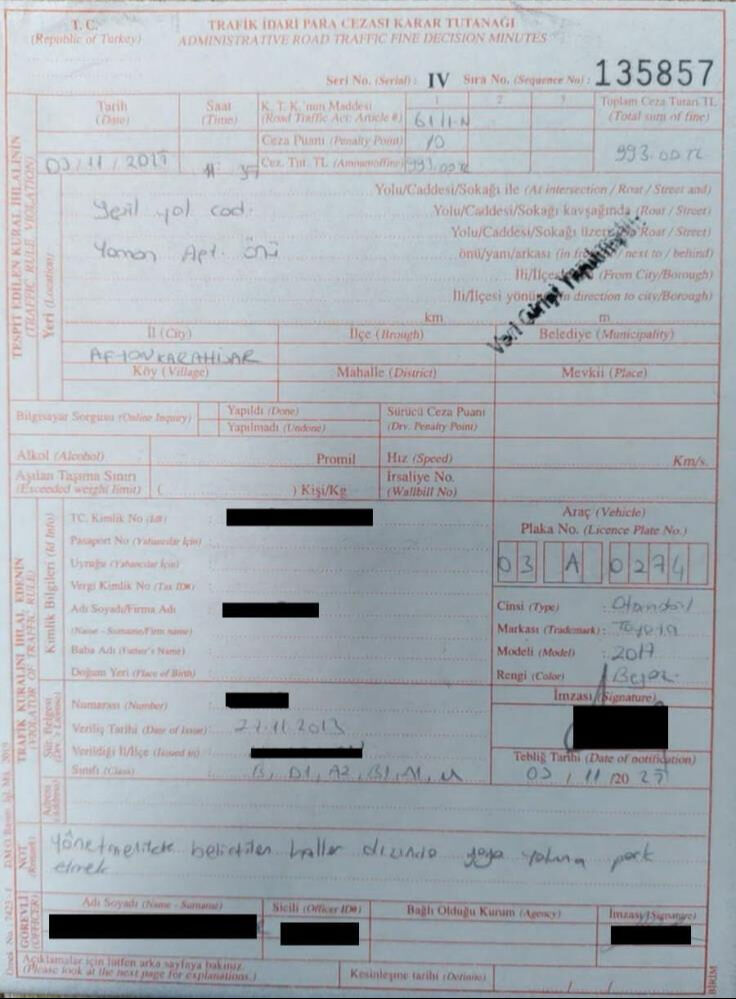 T. C.
(Republic of Turkey)
TRAFİK İDARİ PARA CEZASI KARAR TUTANAĞI
ADMINISTRATIVE ROAD TRAFFIC FINE DECISION MINUTES
Seri No. (Serial) : IV Sıra No. (Sequence No) : 135857
Tarih
(Date)
Saat
(Time)
K. T. K.'nun Maddesi
(Road Traffic Act: Article #)
1 2 3
61/1-N
Toplam Ceza Tutarı TL
(Total sum of fine)
Ceza Puanı (Penalty Point)
10
993.00 TL
Cez. Tut. TL
993.00 TL
TESPİT EDİLEN KURAL İHLALİNİN
(TRAFFIC RULE VIOLATION)
Yeri (Location)
Yolu/Caddesi/Sokağı ile (At intersection / Roar / Street and)
Yeşil yol cad.
Yolu/Caddesi/Sokağı kavşağında (Roar / Street)
Yolu/Caddesi/Sokağı (Roar / Street)
Yaman Apt. önü
önü/yanı/arkası (in / next to / behind)
(From City/Borough)
İli/İlçesi in direction to city/Borough)
km. m.
Veri Girişi Yapılmıştır.
İl (City) İlçe (Brough) Belediye (Municipality)
AFYONKARAHİSAR
Köy (Village) Mahalle (District) Mevkii (Place)
Bilgisayar Sorgusu (Online Inquiry)
Yapıldı (Done)
Yapılmadı (Undone)
Sürücü Ceza Puanı
(Drv. Penalty Point)
Alkol (Alcohol) Promil Hız (Speed) Km/s.
Aşılan Taşıma Sınırı
(Exceeded weight limit) ( ) Kişi/Kg
İrsaliye No.
(Wallbill No)
TRAFİK KURALINI İHLAL EDENİN
(VIOLATOR OF TRAFFIC RULE)
Kimlik Bilgileri (Id Info)
TC. Kimlik No (Id#) :
Pasaport No (Yabancılar İçin) :
Uyruğu (Yabancılar İçin) :
Vergi Kimlik No (Tax ID#) :
Adı Soyadı/Firma Adı :
(Name - Surname/Firm name)
Baba Adı (Father's Name) :
Doğum Yeri (Place of Birth) :
Araç (Vehicle)
Plaka No. (Licence Plate No.)
03 A 0274
Cinsi (Type) : Otomobil
Markası (Trademark) : Toyota
Modeli (Model) : 2017
Rengi (Color) : Beyaz
Sür. Belgesi
(Drv.'s License)
Numarası (Number) :
Veriliş Tarihi (Date of Issue) : 27.11.2013
Verildiği İl/İlçe (Issued in) :
Sınıfı (Class) : B, D1, A2, B1, A1, M
İmzası (Signature)
Tebliğ Tarihi (Date of notification)
03 / 11 /20 25
Adresi
(Address)
NOT
(Remark)
Yönetmelikte belirtilen haller dışında yaya yoluna park
etmek
GÖREVLİ
(OFFICER)
Adı Soyadı (Name - Surname) Sicili (Officer ID#) Bağlı Olduğu Kurum (Agency) İmzası (Signature)
Açıklamalar için lütfen arka sayfaya bakınız.
(Please look at the next page for explanations.)
Kesinleşme tarihi (Definite) / /
BİRİM